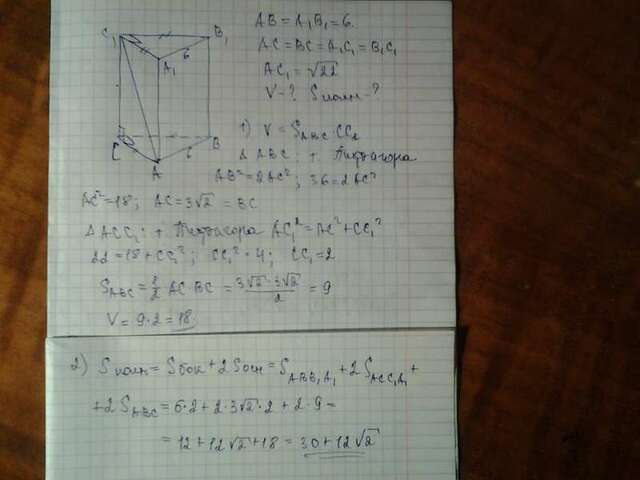 C₁ B₁
6
A₁
C B
6
A
AB = A₁B₁ = 6.
AC = BC = A₁C₁ = B₁C₁
AC₁ = √22
V-? Sполн-?
1) V = S_ABC · CC₁
Δ ABC: т. Пифагора
AB² = 2AC²; 36 = 2AC²
AC² = 18; AC = 3√2 = BC
Δ ACC₁: т. Пифагора AC₁² = AC² + CC₁²
22 = 18 + CC₁²; CC₁² = 4; CC₁ = 2
S_ABC = 1/2 AC·BC = 3√2·3√2/2 = 9
V = 9·2 = 18.
2) Sполн = Sбок + 2Sосн = S_ABB₁A₁ + 2S_ACC₁A₁ +
+ 2S_ABC = 6·2 + 2·3√2·2 + 2·9 =
= 12 + 12√2 + 18 = 30 + 12√2